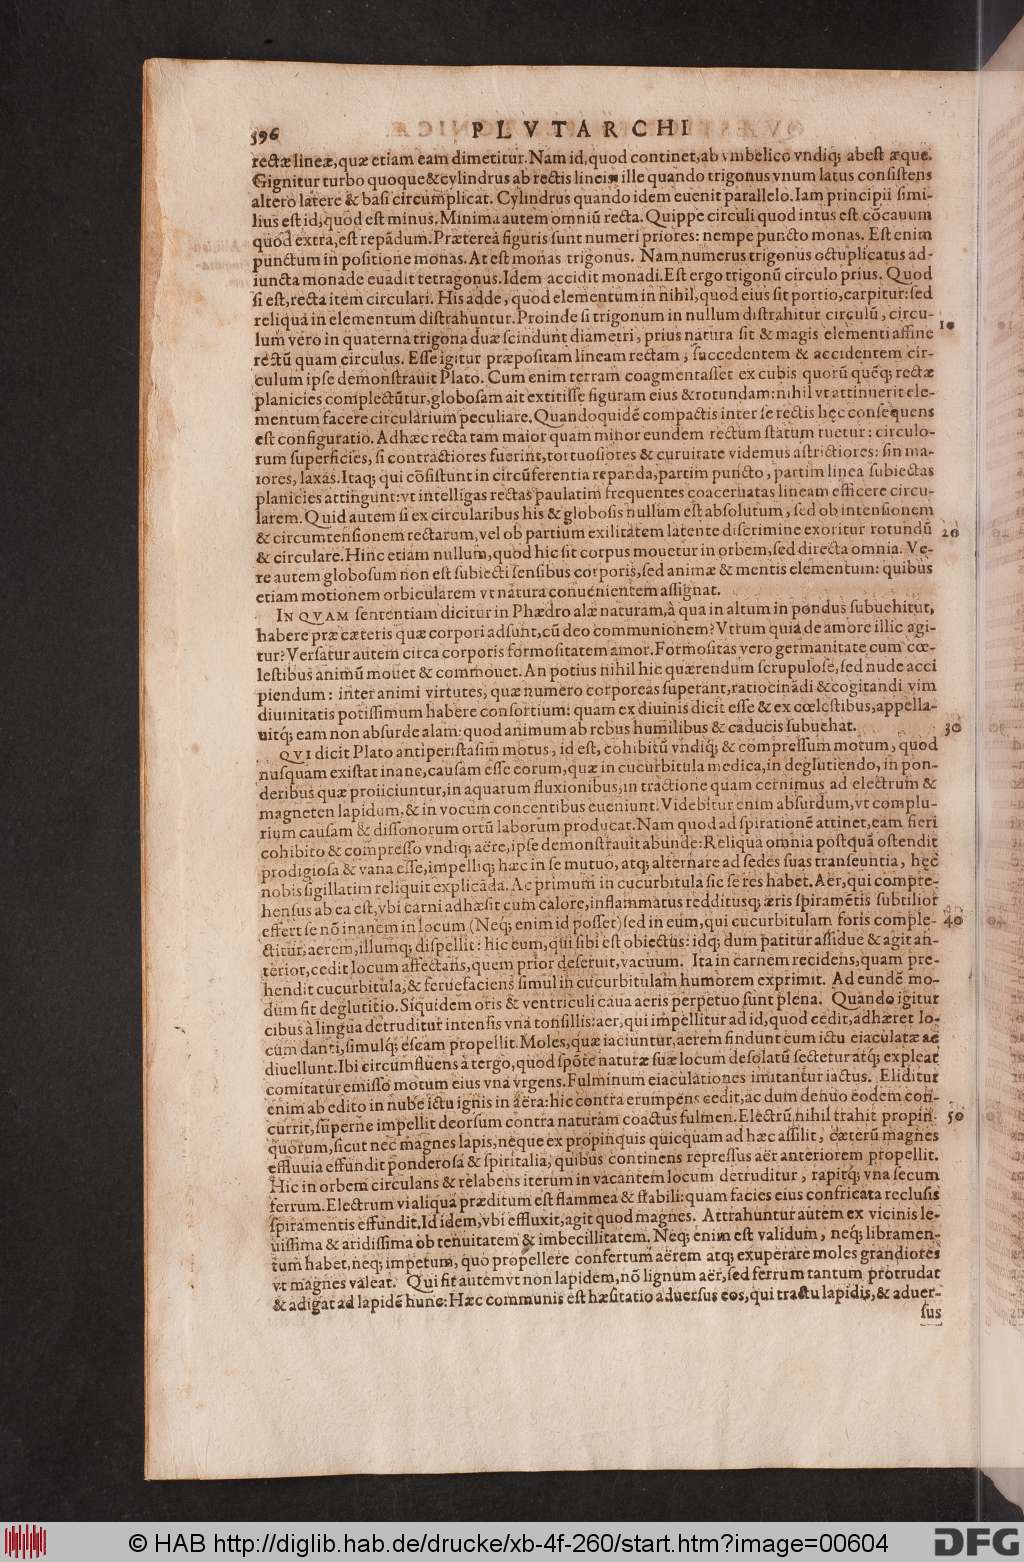 596
PLVTARCHI
rectæ lineæ, quæ etiam eam dimetitur. Nam id, quod continet, ab vmbelico vndiq; abest æque.
Gignitur turbo quoque & cylindrus ab rectis lineis ille quando trigonus vnum latus consistens
altero latere & basi circumplicat. Cylindrus quando idem euenit parallelo. Iam principii simi-
lius est id, quod est minus. Minima autem omniũ recta. Quippe circuli quod intus est cõcauum
quod extra, est repãdum. Præterea figuris sunt numeri priores: nempe puncto monas. Est enim
punctum in positione monas. At est monas trigonus. Nam numerus trigonus octuplicatus ad-
iuncta monade euadit tetragonus. Idem accidit monadi. Est ergo trigonũ circulo prius. Quod
si est, recta item circulari. His adde, quod elementum in nihil, quod eius sit portio, carpitur: sed
reliqua in elementum distrahuntur. Proinde si trigonum in nullum distrahitur circulũ, circu-
lum vero in quaterna trigona duæ scindunt diametri, prius natura sit & magis elementi affine
10
rectũ quam circulus. Esse igitur præpositam lineam rectam, succedentem & accidentem cir-
culum ipse demonstrauit Plato. Cum enim terram coagmentasset ex cubis quorũ quẽq; rectæ
planicies complectũtur, globosam ait extitisse figuram eius & rotundam: nihil vt attinuerit ele-
mentum facere circularium peculiare. Quandoquidẽ compactis inter se rectis hęc consequens
est configuratio. Adhæc recta tam maior quam minor eundem rectum statum tuetur: circulo-
rum superficies, si contractiores fuerint, tortuosiores & curuitate videmus astrictiores: sin ma-
iores, laxas. Itaq; qui cõsistunt in circũferentia repanda, partim puncto, partim linea subiectas
planicies attingunt: vt intelligas rectas paulatim frequentes coaceruatas lineam efficere circu-
larem. Quid autem si ex circularibus his & globosis nullum est absolutum, sed ob intensionem
& circumtensionem rectarum, vel ob partium exilitatem latente discrimine exoritur rotundũ
20
& circulare. Hinc etiam nullum, quod hic sit corpus mouetur in orbem, sed directa omnia. Ve-
re autem globosum non est subiecti sensibus corporis, sed animæ & mentis elementum: quibus
etiam motionem orbicularem vt natura conuenientem assignat.
IN QVAM sententiam dicitur in Phædro alæ naturam, à qua in altum in pondus subuehitur,
habere præ cæteris quæ corpori adsunt, cũ deo communionem? Vtrum quia de amore illic agi-
tur? Versatur autem circa corporis formositatem amor. Formositas vero germanitate cum cœ-
lestibus animũ mouet & commouet. An potius nihil hic quærendum scrupulose, sed nude acci
piendum: inter animi virtutes, quæ numero corporeas superant, ratiocinãdi & cogitandi vim
diuinitatis potissimum habere consortium: quam ex diuinis dicit esse & ex cœlestibus, appella-
uitq; eam non absurde alam: quod animum ab rebus humilibus & caducis subuehat.
30
QVI dicit Plato antiperistasim motus, id est, cohibitũ vndiq; & compressum motum, quod
nusquam existat inane, causam esse eorum, quæ in cucurbitula medica, in deglutiendo, in pon-
deribus quæ proiiciuntur, in aquarum fluxionibus, in tractione quam cernimus ad electrum &
magneten lapidum, & in vocum concentibus eueniunt. Videbitur enim absurdum, vt complu-
rium causam & dissonorum ortũ laborum producat. Nam quod ad spirationẽ attinet, eam fieri
cohibito & compresso vndiq; aëre, ipse demonstrauit abunde: Reliqua omnia postquã ostendit
prodigiosa & vana esse, impelliq; hæc in se mutuo, atq; alternare ad sedes suas transeuntia, hęc
nobis sigillatim reliquit explicãda. Ac primum in cucurbitula sic se res habet. Aër, qui compre-
hensus ab ea est, vbi carni adhæsit cum calore, inflammatus redditusq; æris spiramẽtis subtilior
effert se nõ inanem in locum (Neq; enim id posset) sed in eum, qui cucurbitulam foris comple-
40
ctitur, aerem, illumq; dispellit: hic eum, qui sibi est obiectus: idq; dum patitur assidue & agit an-
terior, cedit locum affectans, quem prior deseruit, vacuum. Ita in carnem recidens, quam pre-
hendit cucurbitula, & feruefaciens simul in cucurbitulam humorem exprimit. Ad eundẽ mo-
dum fit deglutitio. Siquidem oris & ventriculi caua aeris perpetuo sunt plena. Quando igitur
cibus à lingua detruditur intensis vna tonsillis: aer, qui impellitur ad id, quod cedit, adhæret lo-
cum danti, simulq; escam propellit. Moles, quæ iaciuntur, aerem findunt cum ictu eiaculatæ ac
diuellunt. Ibi circumfluens à tergo, quod spõte naturæ suæ locum desolatũ sectetur atq; expleat
comitatur emisso motum eius vna vrgens. Fulminum eiaculationes imitantur iactus. Eliditur
enim ab edito in nube ictu ignis in aëra: hic contra erumpens cedit, ac dum denuo eodem con-
currit, superne impellit deorsum contra naturam coactus fulmen. Electrũ nihil trahit propin-
50
quorum, sicut nec magnes lapis, neque ex propinquis quicquam ad hæc assilit, cæterũ magnes
effluuia effundit ponderosa & spiritalia, quibus continens repressus aër anteriorem propellit.
Hic in orbem circulans & relabens iterum in vacantem locum detruditur, rapitq; vna secum
ferrum. Electrum vialiqua præditum est flammea & stabili: quam facies eius confricata reclusis
spiramentis effundit. Id idem, vbi effluxit, agit quod magnes. Attrahuntur autem ex vicinis le-
uissima & aridissima ob tenuitatem & imbecillitatem. Neq; enim est validum, neq; libramen-
tum habet, neq; impetum, quo propellere confertum aërem atq; exuperare moles grandiores
vt magnes valeat. Qui fit autem vt non lapidem, nõ lignum aër, sed ferrum tantum protrudat
& adigat ad lapidẽ hunc: Hæc communis est hæsitatio aduersus eos, qui tractu lapidis, & aduer-
sus
© HAB http://diglib.hab.de/drucke/xb-4f-260/start.htm?image=00604
DFG